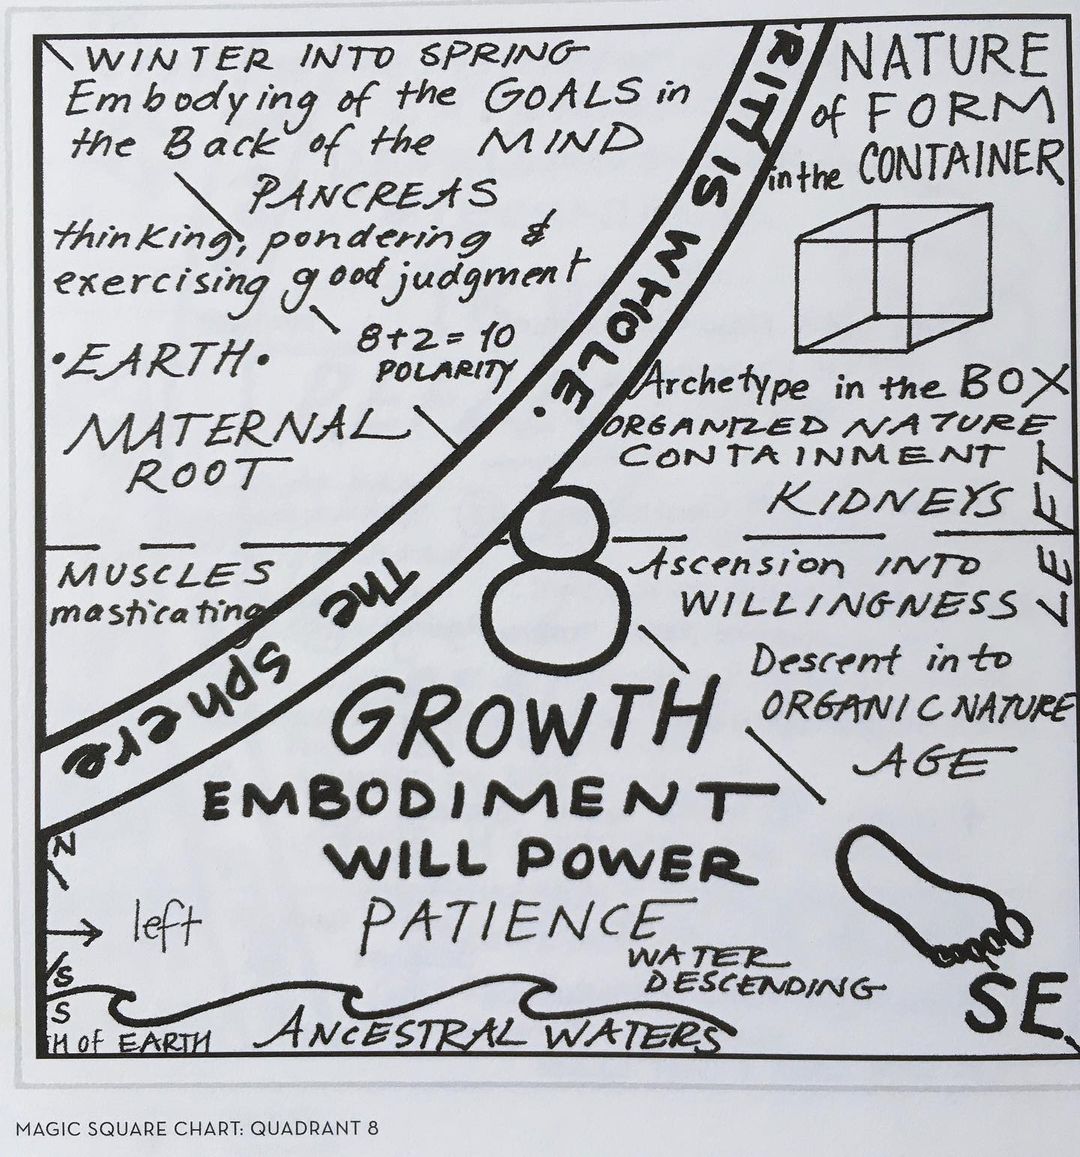 WINTER INTO SPRING
Embodying of the GOALS in
the Back of the MIND
PANCREAS
thinking, pondering &
exercising good judgment
8+2=10
POLARITY
•EARTH•
MATERNAL
ROOT
MUSCLES
masticating
The Sphere
RITY IS WHOLE.
NATURE
of FORM
in the CONTAINER
Archetype in the BOX
ORGANIZED NATURE
CONTAINMENT
KIDNEYS
LEFT
8
Ascension INTO
WILLINGNESS
Descent into
ORGANIC NATURE
AGE
GROWTH
EMBODIMENT
WILL POWER
PATIENCE
WATER
DESCENDING
N
left
S
S
H of EARTH
ANCESTRAL WATERS
SE
MAGIC SQUARE CHART: QUADRANT 8